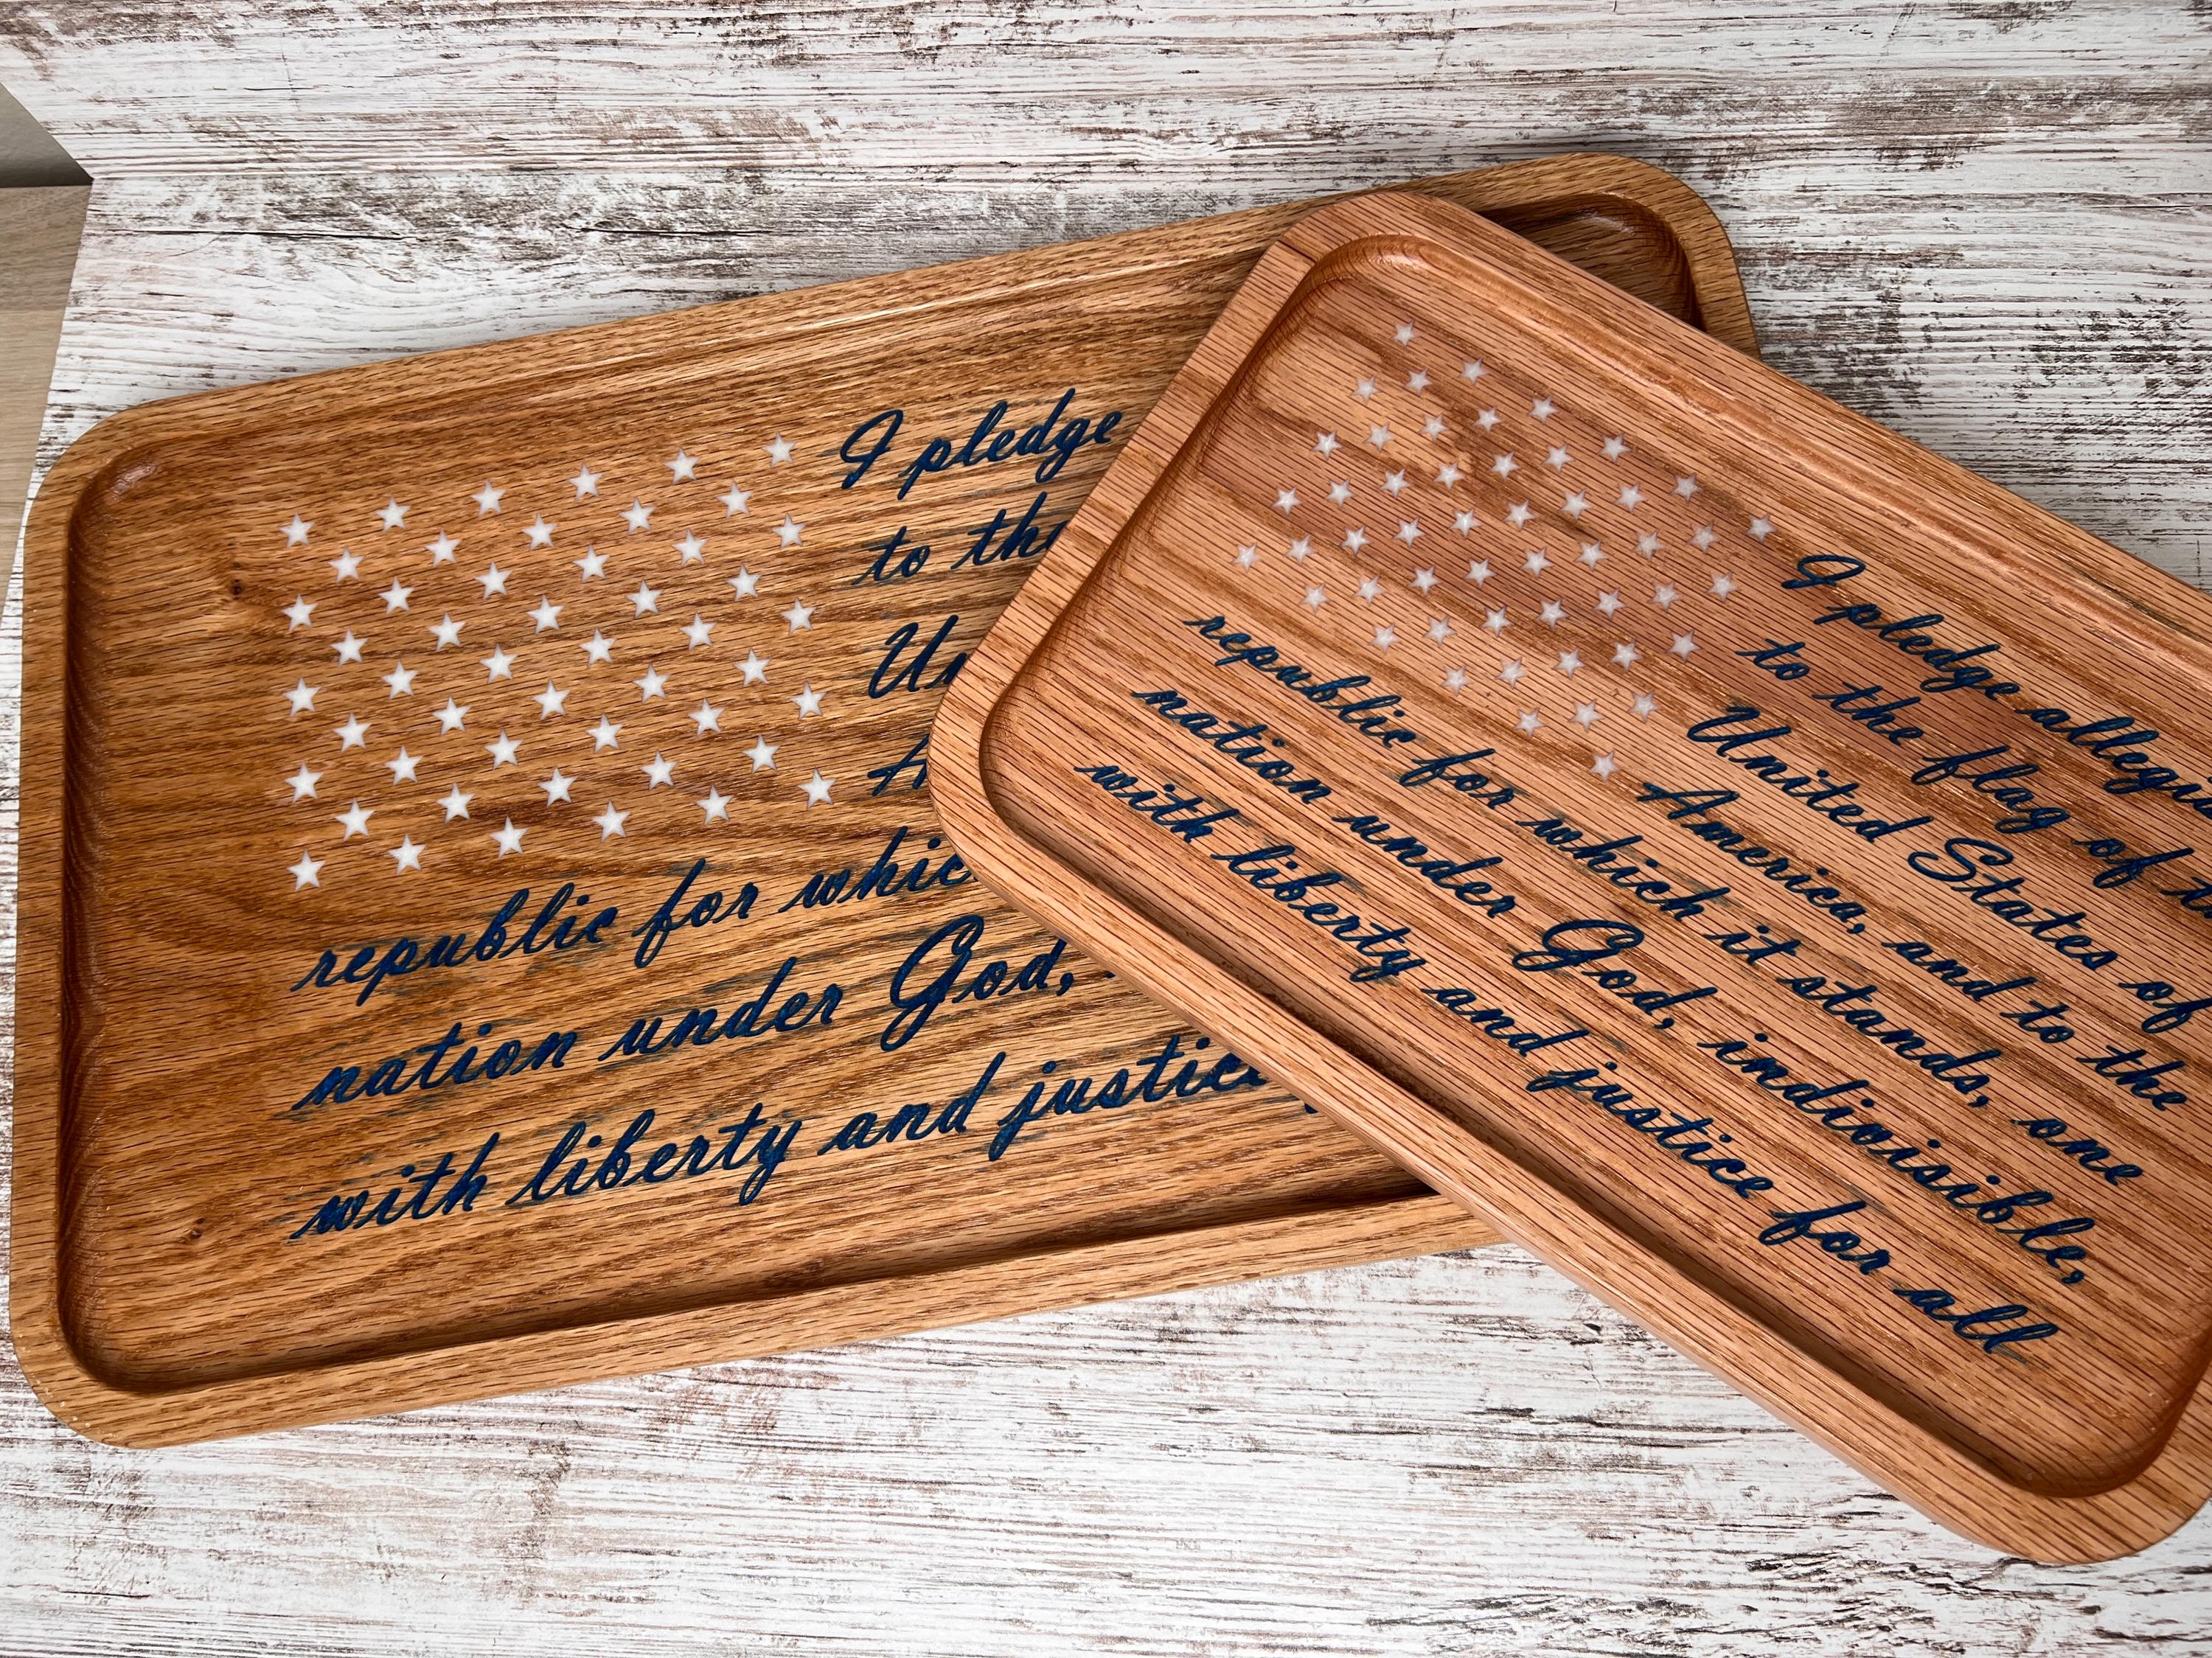 I pledge
to the
republic for which
nation under God,
with liberty and justice
I pledge
to the flag of
United States of
America, and to the
republic for which it stands, one
nation under God, indivisible,
with liberty and justice for all